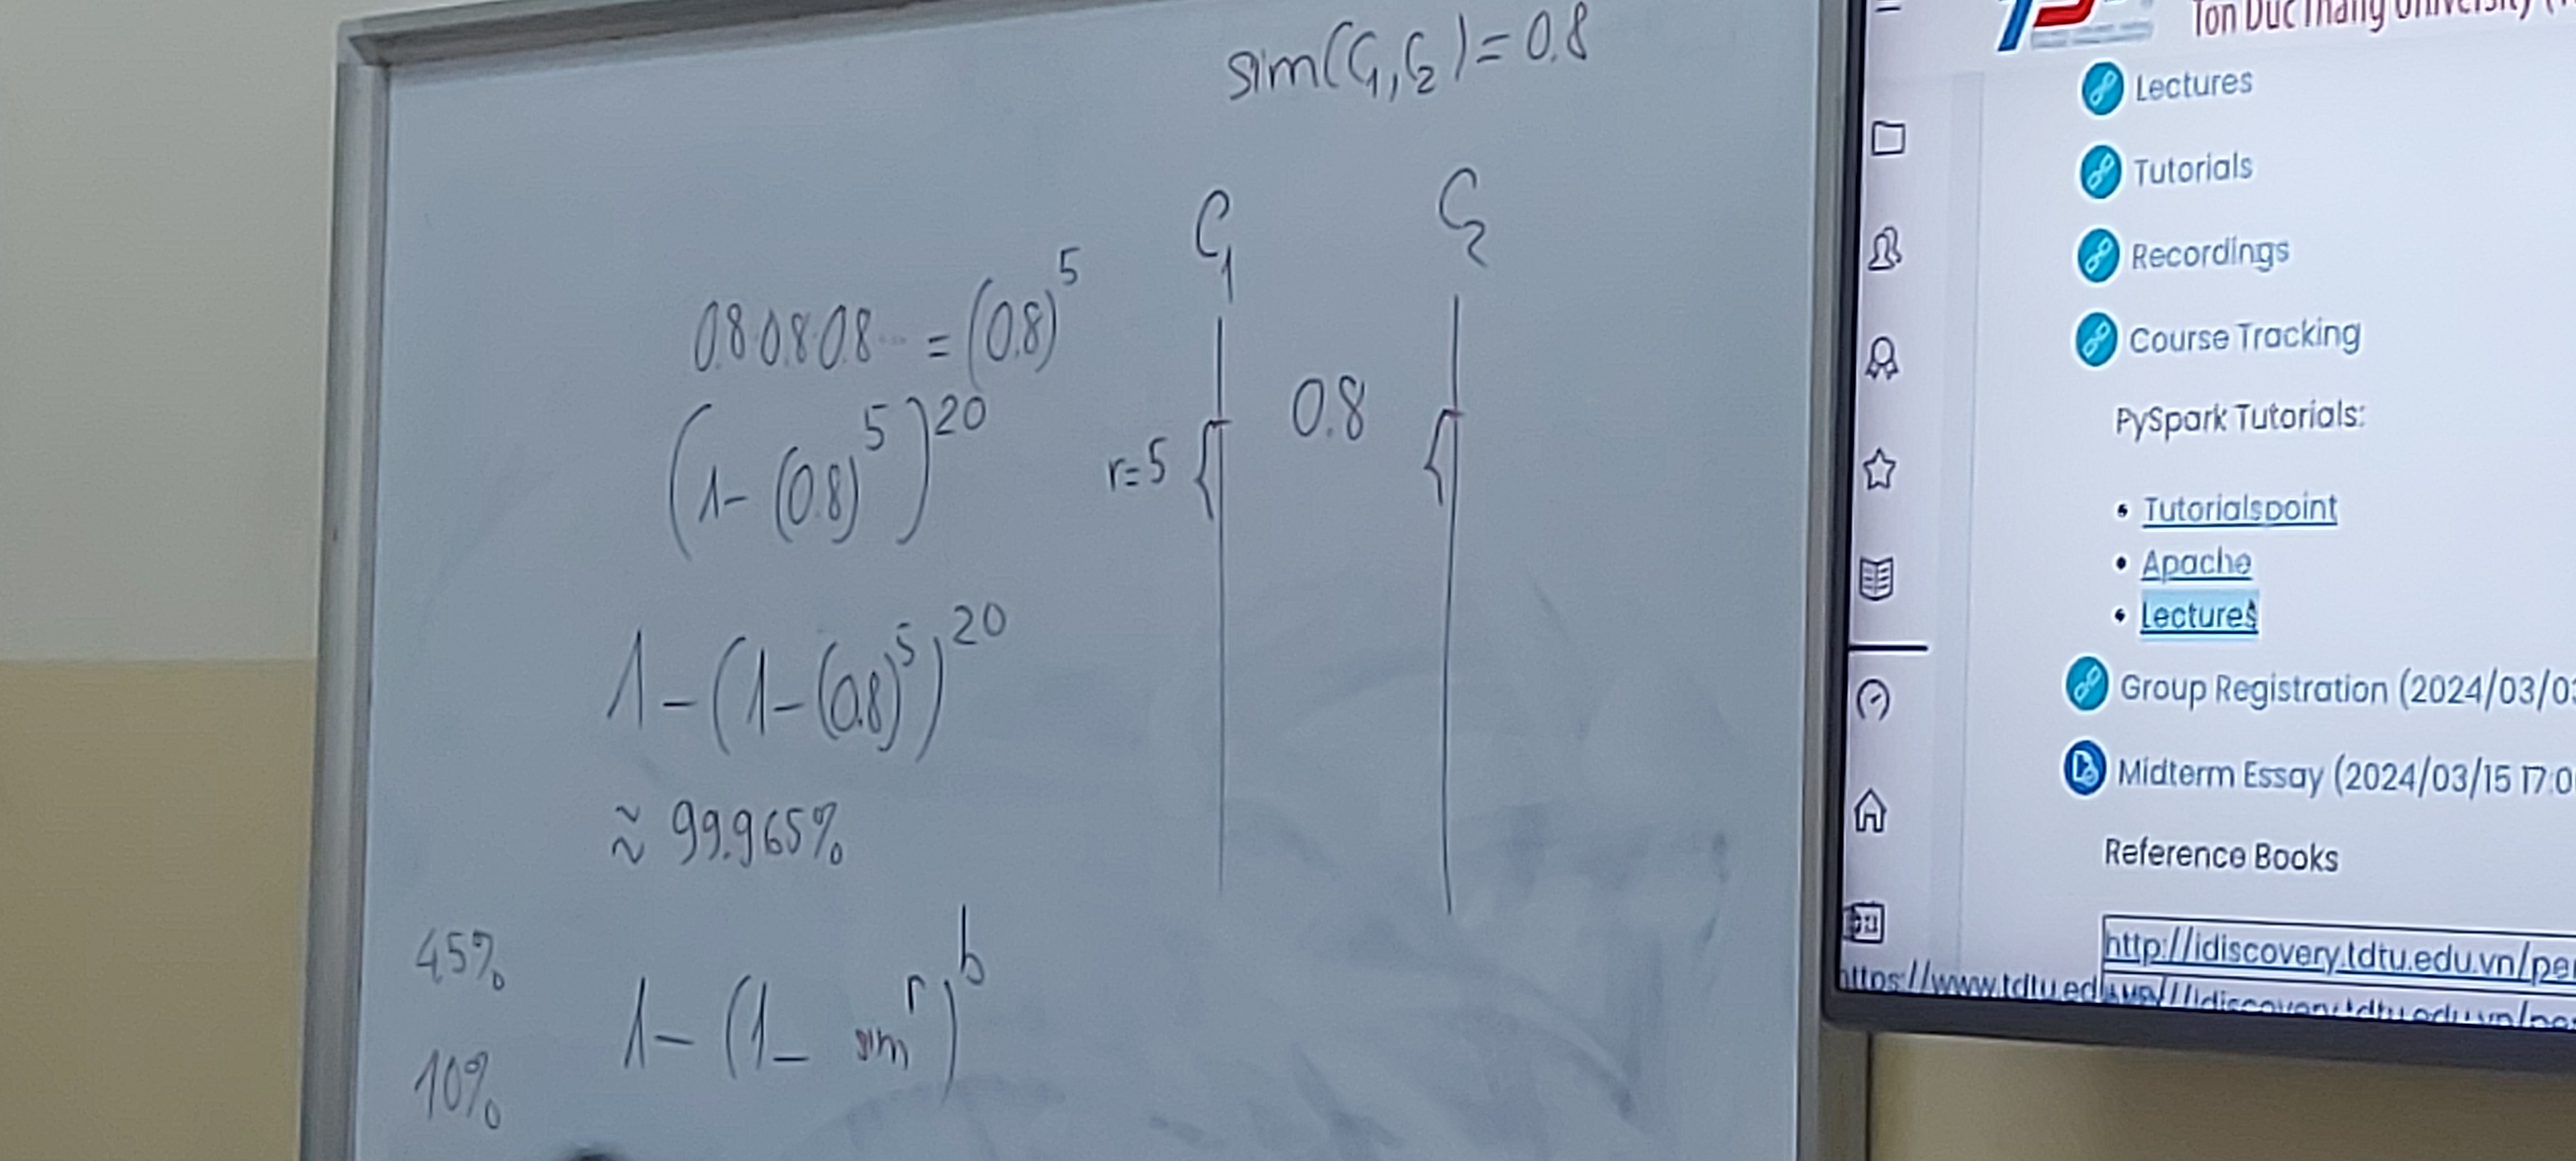 sim(C₁, C₂) = 0.8
C₁ C₂
0.8·0.8·0.8··· = (0.8)⁵
(1-(0.8)⁵)²⁰
r=5 0.8
1-(1-(0.8)⁵)²⁰
≈ 99.965%
45%
1-(1- simʳ)ᵇ
10%
Ton Duc Thang University
Lectures
Tutorials
Recordings
Course Tracking
PySpark Tutorials:
• Tutorialspoint
• Apache
• Lectures
Group Registration (2024/03/0
Midterm Essay (2024/03/15 17:0
Reference Books
http://idiscovery.tdtu.edu.vn/pe
https://www.tdtu.ed